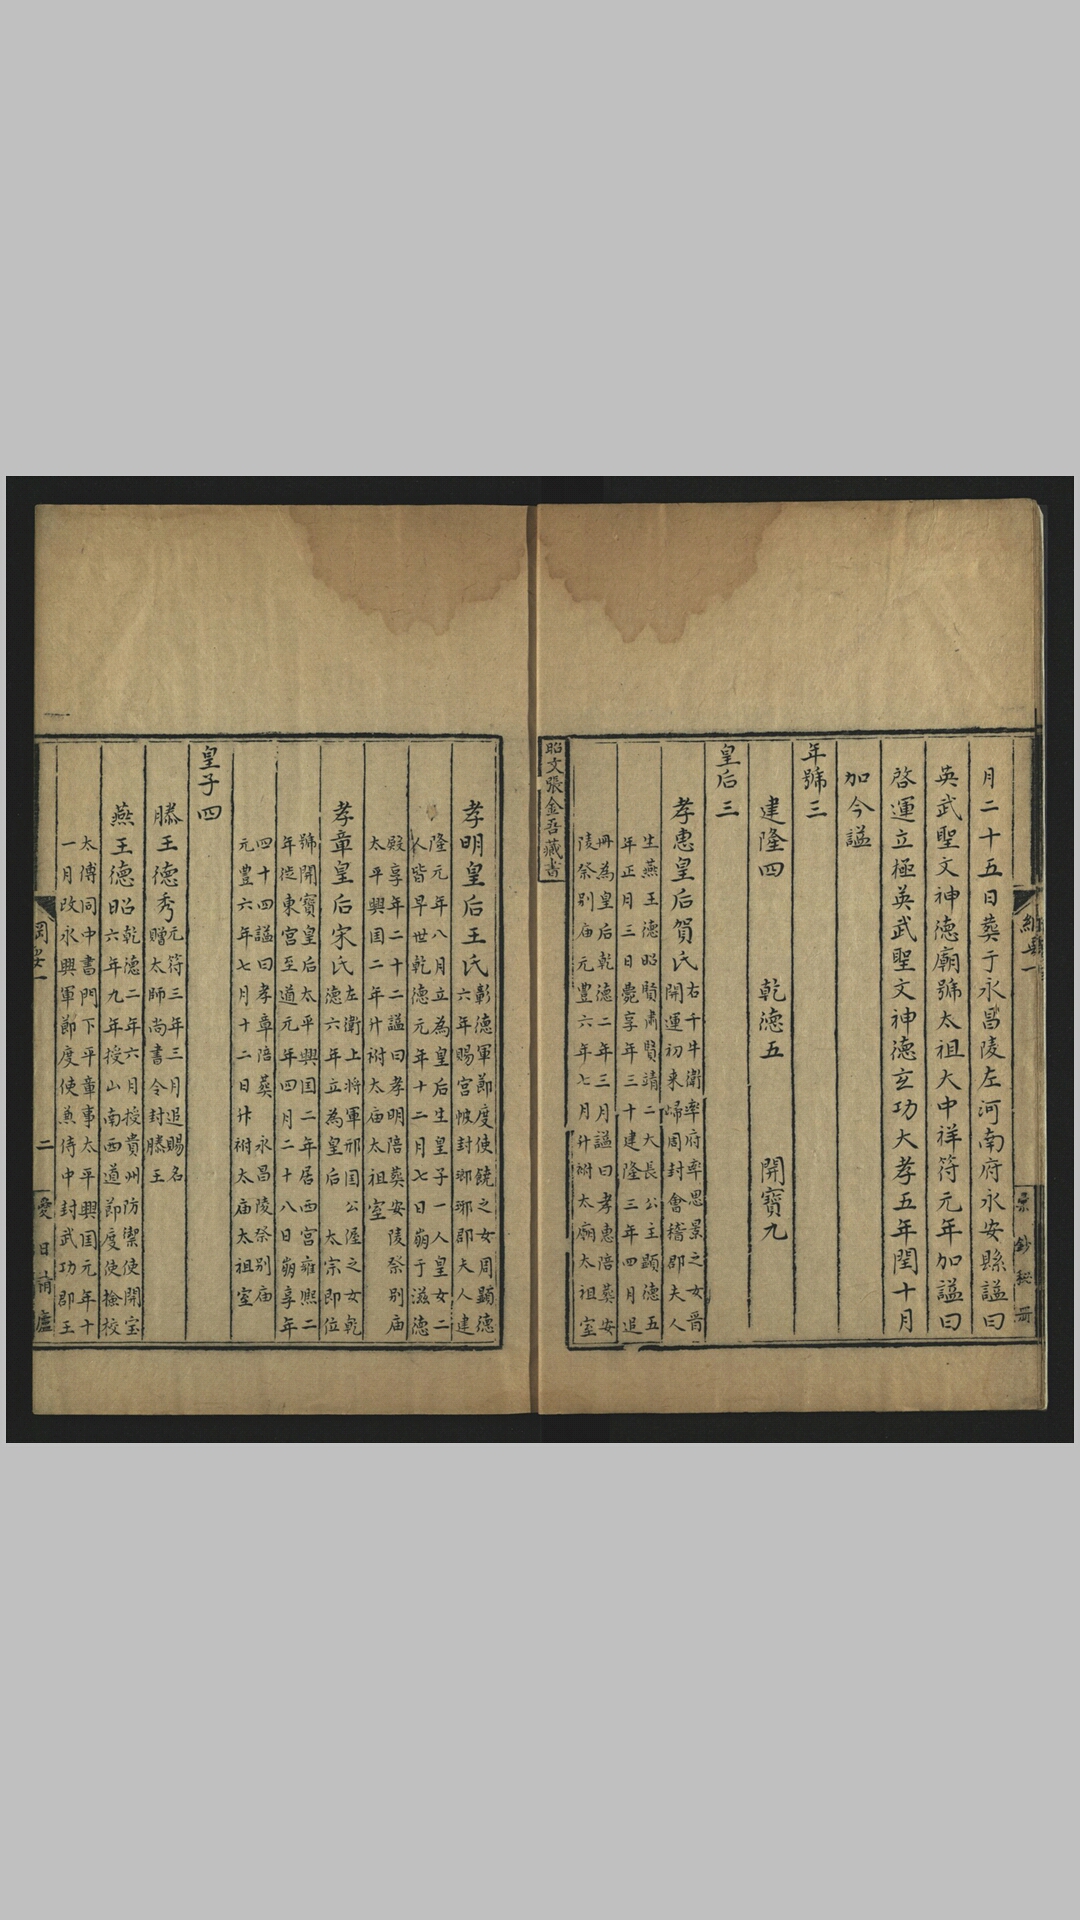 月二十五日葬于永昌陵左河南府永安縣諡曰
英武聖文神德廟號太祖大中祥符元年加諡曰
啓運立極英武聖文神德玄功大孝五年閏十月
加今諡
年號三
建隆四 乾德五 開寶九
皇后三
孝惠皇后賀氏
右千牛衛率府率思景之女晉
開運初来歸周封會稽郡夫人
生燕王德昭賢肅賢靖二大長公主顯德五
年正月三日薨享年三十建隆三年四月追
冊為皇后乾德二年三月諡曰孝惠陪葬安
陵祭别庙元豊六年七月升祔太廟太祖室
昭文張金吾藏書
孝明皇后王氏
彰德軍節度使饒之女周顯德
六年賜宫帔封瑯琊郡夫人建
隆元年八月立為皇后生皇子一人皇女二
人皆早世乾德元年十二月七日崩于滋德
殿享年二十二諡曰孝明陪葬安陵祭别庙
太平興国二年升祔太庙太祖室
孝章皇后宋氏
左衛上将軍邢国公渥之女乾
德六年立為皇后太宗即位
號開寶皇后太平興国二年居西宫雍熙二
年徙東宫至道元年四月二十八日崩享年
四十四諡曰孝章陪葬永昌陵祭别庙
元豊六年七月十二日升祔太庙太祖室
皇子四
滕王德秀
元符三年三月追賜名
赠太師尚書令封滕王
燕王德昭
乾德二年六月授貴州防禦使開宝
六年九年授山南西道節度使檢校
太傅同中書門下平章事太平興国元年十
一月改永興軍節度使兼侍中封武功郡王
二
愛日精廬